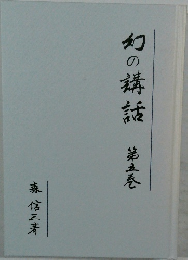 幻の講話 第五巻
森信三著